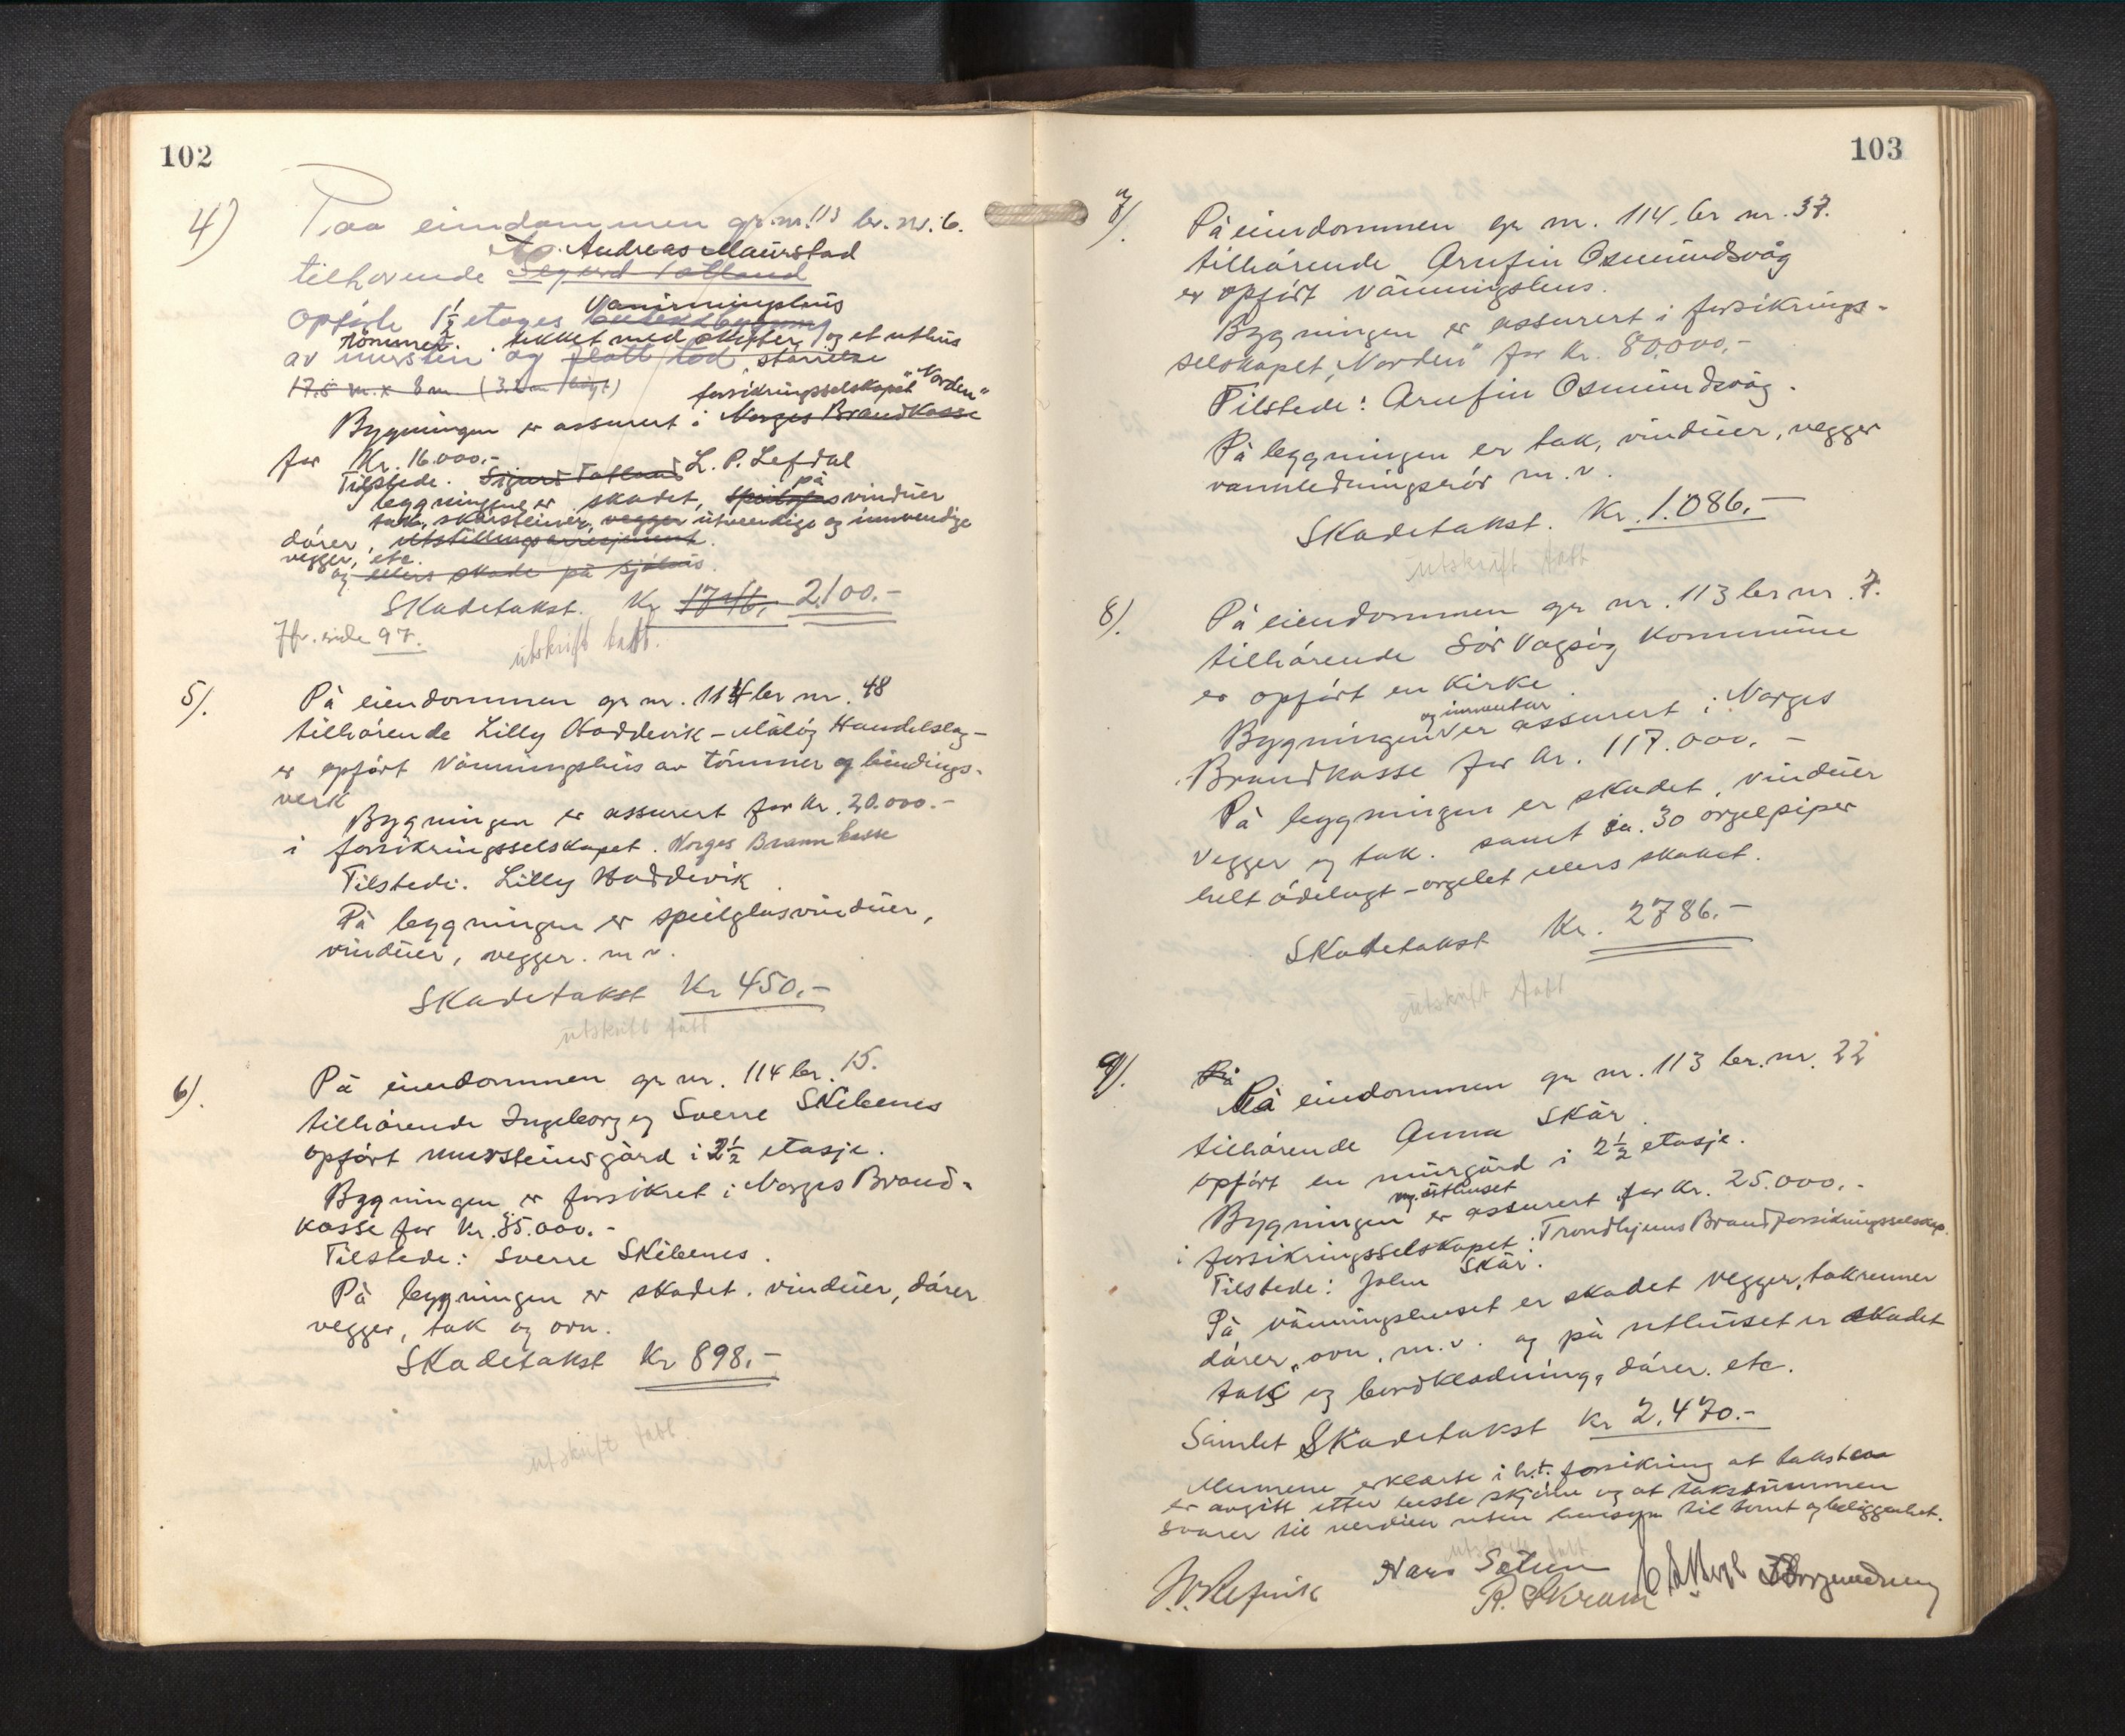 102
4) Paa eiendommen gr. nr. 113 br. nr. 6.
Andreas Maurstad
tilhørende Sigurd Totland
Vaaningshus
opførte 1½ etages
tømmer. tekket med skifter og et uthus
av mursten og flatt tad, størrelse
17.5 m. x 8 m.
forsikringsselskapet "Norden"
Bygningen er assurert i Norges Brandkasse
for Kr. 16.000.-
Tilstede. Sigurd Totland L. P. Lefdal
på
byggningen er skadet, speilglas vinduer
tak, skorsteiner, vegger utvendige og innvendige
dører, utstillingsarrangement.
vegger, etc.
og ellers skade på sjøhus.
Skadetakst. Kr 1746,- 2100.-
Jfr. side 97.
utskrift tatt.
5). På eiendommen gr nr. 114 br nr. 48
tilhørende Lilly Hoddevik - Måløy Handelslag -
er opført våningshus av tømmer og bindings-
verk
Bygningen er assurert for kr. 20.000.-
i forsikringsselskapet. Norges Brannkasse
Tilstede. Lilly Hoddevik
På byggningen er speilglasvinduer,
vinduer, vegger. m v.
Skadetakst Kr 450.-
utskrift tatt
6). På eiendommen gr nr. 114 br. 15.
tilhørende Ingeborg og Sverre Skibenes
opført mursteinsgård i 2½ etasje.
Bygningen er forsikret i Norges Brand-
kasse for Kr. 35.000.-
Tilstede: Sverre Skibenes.
På byggningen er skadet. vinduer, dører
vegger, tak og ovn.
Skadetakst Kr 898.-
utskrift tatt.
103
7/. På eiendommen gr nr. 114. br nr. 37.
tilhørende Arnfin Osmundsvåg
er opført våningshus.
Bygningen er assurert i forsikrings-
selskapet "Norden" for Kr. 80.000,-
Tilstede: Arnfin Osmundsvåg.
På byggningen er tak, vinduer, vegger
vannledningsrør m. v.
Skadetakst. Kr. 1.086.-
utskrift tatt
8/. På eiendommen gr nr. 113 br nr. 7.
tilhørende Sør Vågsøy Kommune
er opført en Kirke.
og inventar
Bygningen er assurert i Norges
Brandkasse for kr. 117.000.-
På byggningen er skadet, vinduer
vegger og tak. samt ca. 30 orgelpiper
helt ødelagt - orgelet ellers skadet.
Skadetakst Kr. 2786.-
utskrift tatt
9/. På
På eiendommen gr nr. 113 br. nr. 22
tilhørende Anna Skår
opført en murgård i 2½ etasje.
og uthuset
Bygningen er assurert for Kr. 25.000.-
i forsikringsselskapet: Trondhjems Brandforsikringsselskap.
Tilstede: John Skår.
På våningshuset er skadet vegger, takrenner
dører, ovn. m. v. og på uthuset er skadet
tak og bordkledning, dører. etc.
Samlet Skadetakst Kr 2.470.-
Mennene erklærte i h.t. forsikring at taksten
er avgitt etter beste skjønn og at takstsummen
svarer til verdien uten hensyn til tomt og beliggenhet.
utskrift tatt
Hans Sætren
R. Skram